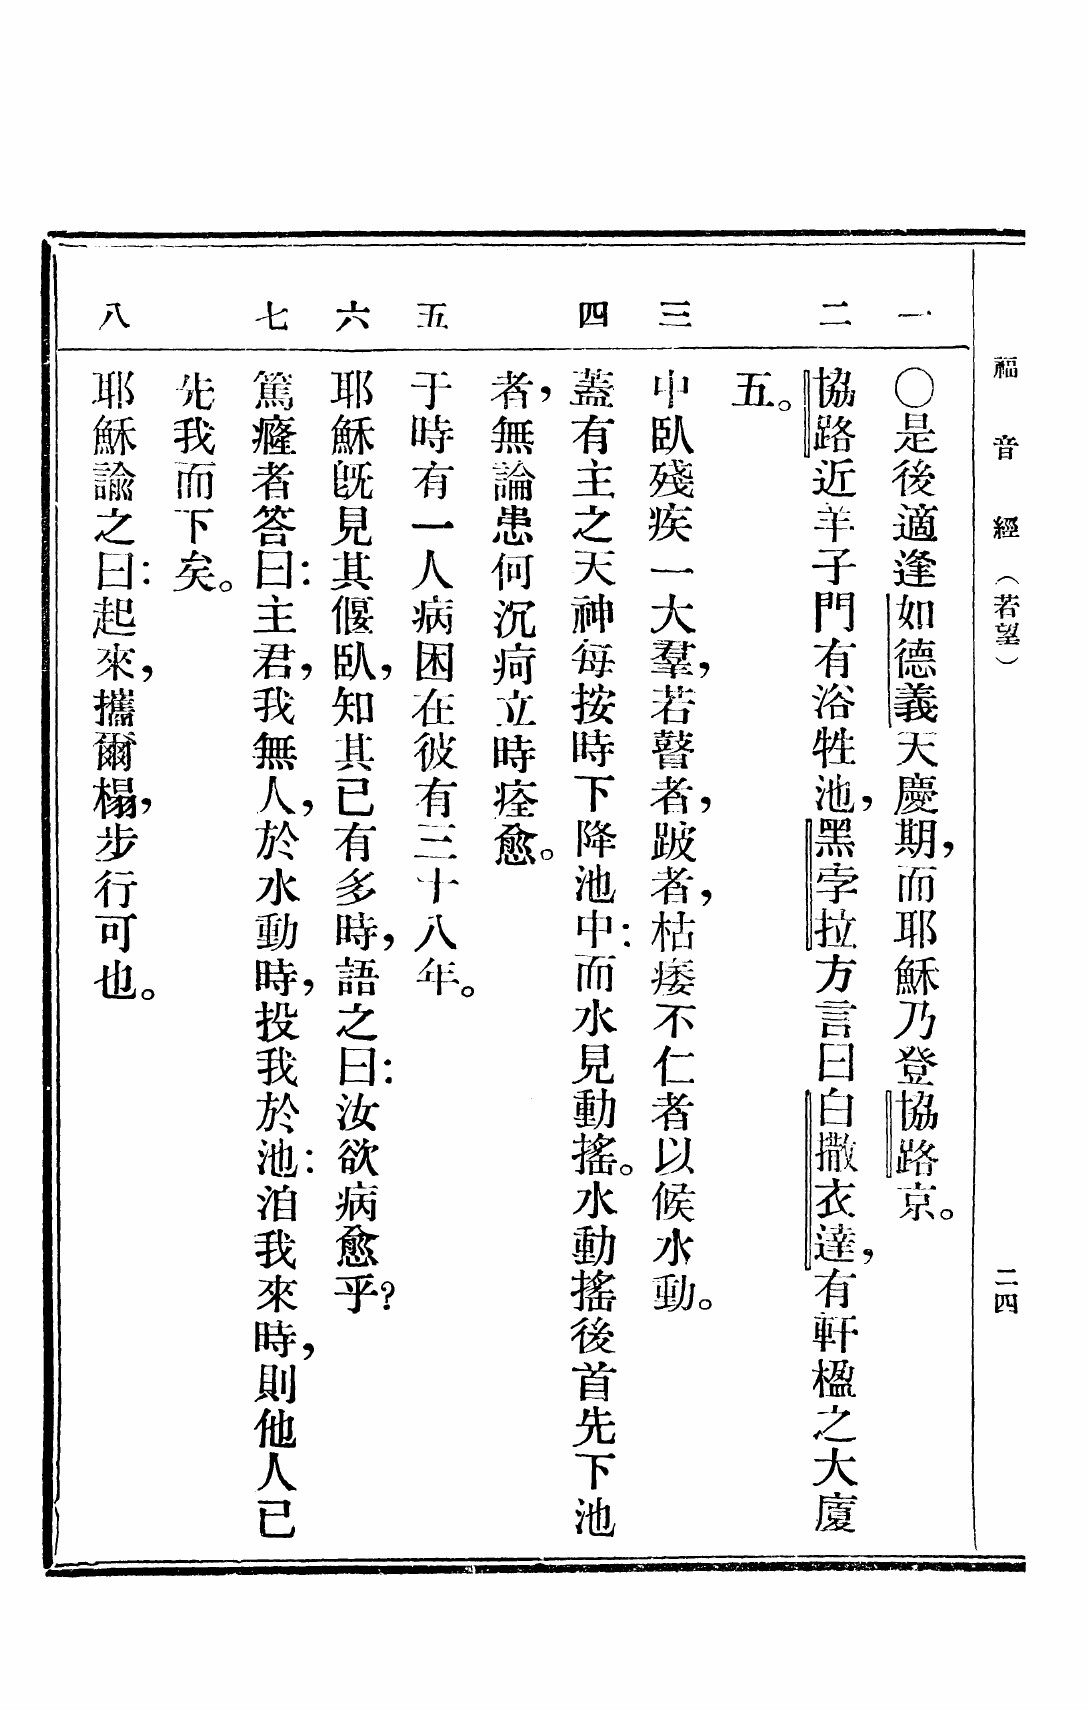 福音經（若望） 二四
一 ○是後適逢如德義天慶期，而耶穌乃登協路京。
二 協路近羊子門有浴牲池，黑孛拉方言曰白撒衣達，有軒楹之大廈
五。
三 中臥殘疾一大羣，若瞽者，跛者，枯痿不仁者以候水動。
四 蓋有主之天神每按時下降池中：而水見動搖。水動搖後首先下池
者，無論患何沉疴立時痊愈。
五 于時有一人病困在彼有三十八年。
六 耶穌旣見其偃臥，知其已有多時，語之曰：汝欲病愈乎？
七 篤癃者答曰：主君，我無人，於水動時，投我於池：洎我來時，則他人已
先我而下矣。
八 耶穌諭之曰：起來，攜爾榻，步行可也。